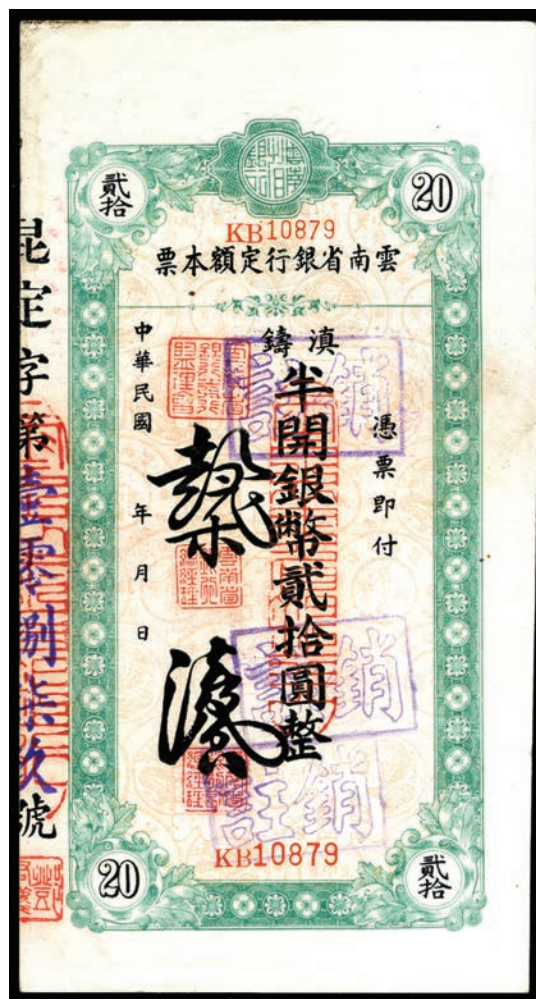 貳拾
20
KB10879
雲南省銀行定額本票
憑票即付
滇鑄
半開銀幣貳拾圓整
中華民國　年　月　日
註銷
註銷
註銷
KB10879
20
貳拾
昆定字第壹零捌柒玖號